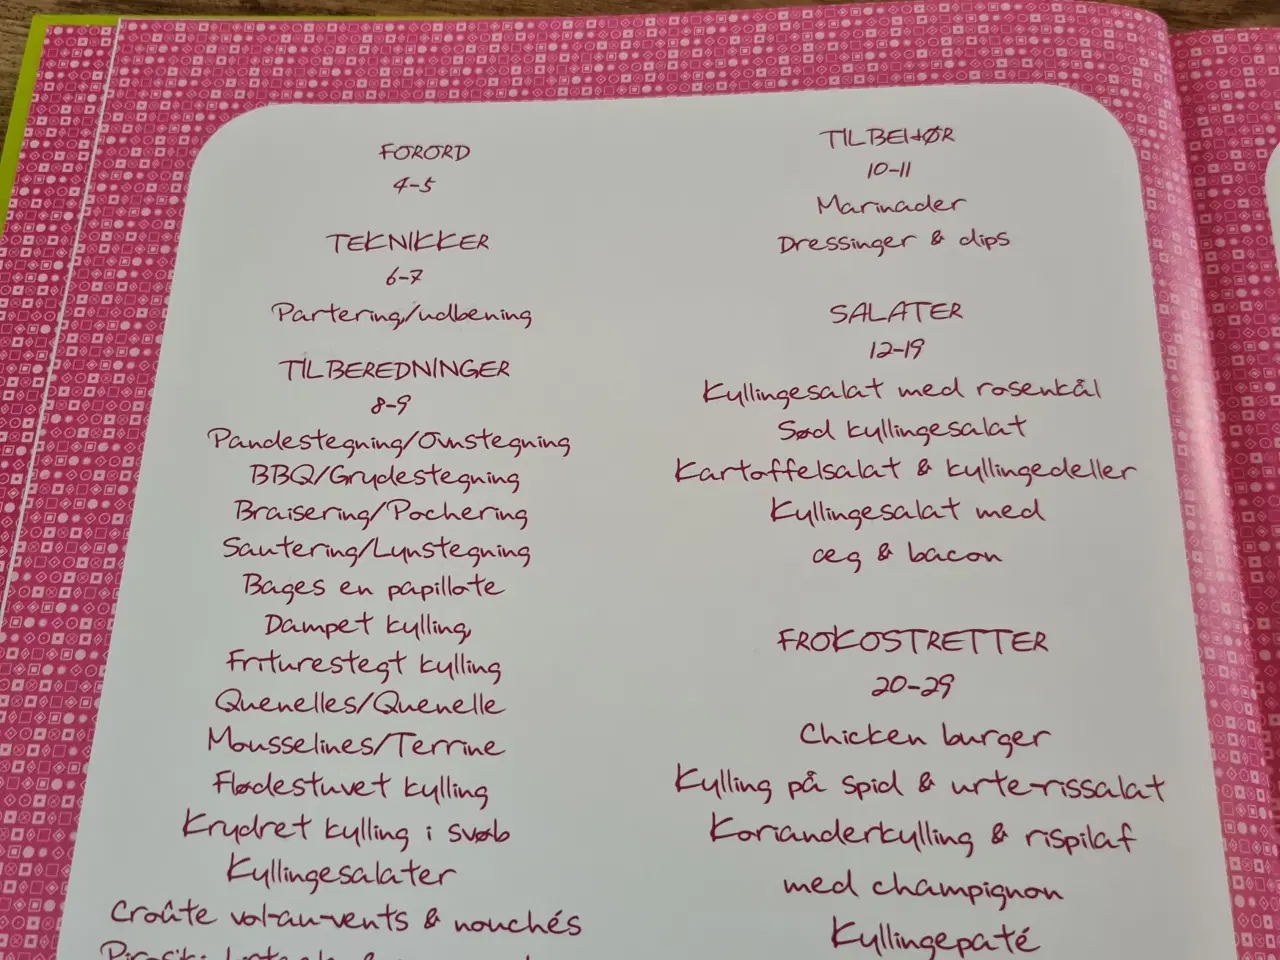 FORORD
4-5
TEKNIKKER
6-7
Partering/udbening
TILBEREDNINGER
8-9
Pandestegning/Ovnstegning
BBQ/Grydestegning
Braisering/Pochering
Sautering/Lynstegning
Bages en papillote
Dampet kylling,
Friturestegt kylling
Quenelles/Quenelle
Mousselines/Terrine
Flødestuvet kylling
Krydret kylling i svøb
Kyllingesalater
Croûte vol-au-vents & nouchés
TILBEHØR
10-11
Marinader
Dressinger & dips
SALATER
12-19
Kyllingesalat med rosenkål
Sød kyllingesalat
Kartoffelsalat & kyllingedeller
Kyllingesalat med
æg & bacon
FROKOSTRETTER
20-29
Chicken burger
Kylling på spid & urte-rissalat
Korianderkylling & rispilaf
med champignon
Kyllingepaté